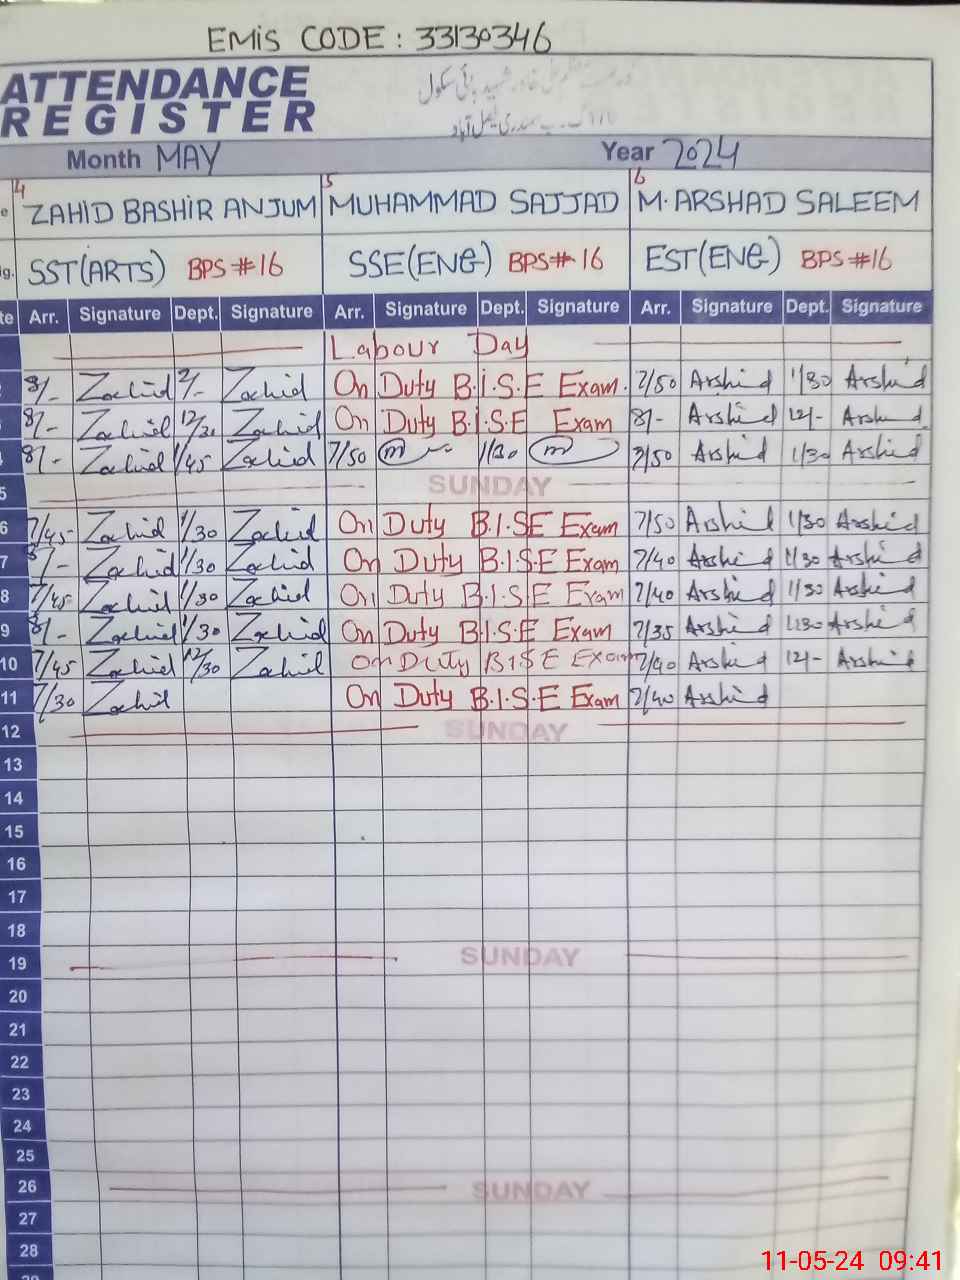 EMIS CODE : 33130346
ATTENDANCE
REGISTER
ہائی سکول
Month MAY Year 2024
4 5 6
ZAHID BASHIR ANJUM MUHAMMAD SAJJAD M. ARSHAD SALEEM
SST(ARTS) BPS#16 SSE(ENG) BPS#16 EST(ENG) BPS#16
Arr. Signature Dept. Signature Arr. Signature Dept. Signature Arr. Signature Dept. Signature
Labour Day
8/- Zahid Zahid On Duty B.I.S.E Exam. 7/50 Arshid 1/30 Arshid
8/- Zahid 12/30 Zahid On Duty B.I.S.E Exam 8/- Arshid 12/- Arshid
8/- Zahid 1/45 Zahid 7/50 1/30 7/50 Arshid 1/30 Arshid
5 SUNDAY
6 7/45 Zahid 1/30 Zahid On Duty B.I.SE Exam 7/50 Arshid 1/30 Arshid
7 8/- Zahid 1/30 Zahid On Duty B.I.S.E Exam 7/40 Arshid 1/30 Arshid
8 7/45 Zahid 1/30 Zahid On Duty B.I.S.E Exam 7/40 Arshid 1/30 Arshid
9 8/- Zahid 1/30 Zahid On Duty B.I.S.E Exam 7/35 Arshid 1/30 Arshid
10 7/45 Zahid 12/30 Zahid On Duty BISE Exam 7/40 Arshid 12/- Arshid
11 7/30 Zahid On Duty B.I.S.E Exam 7/40 Arshid
12 SUNDAY
13
14
15
16
17
18
19 SUNDAY
20
21
22
23
24
25
26 SUNDAY
27
28
11-05-24 09:41